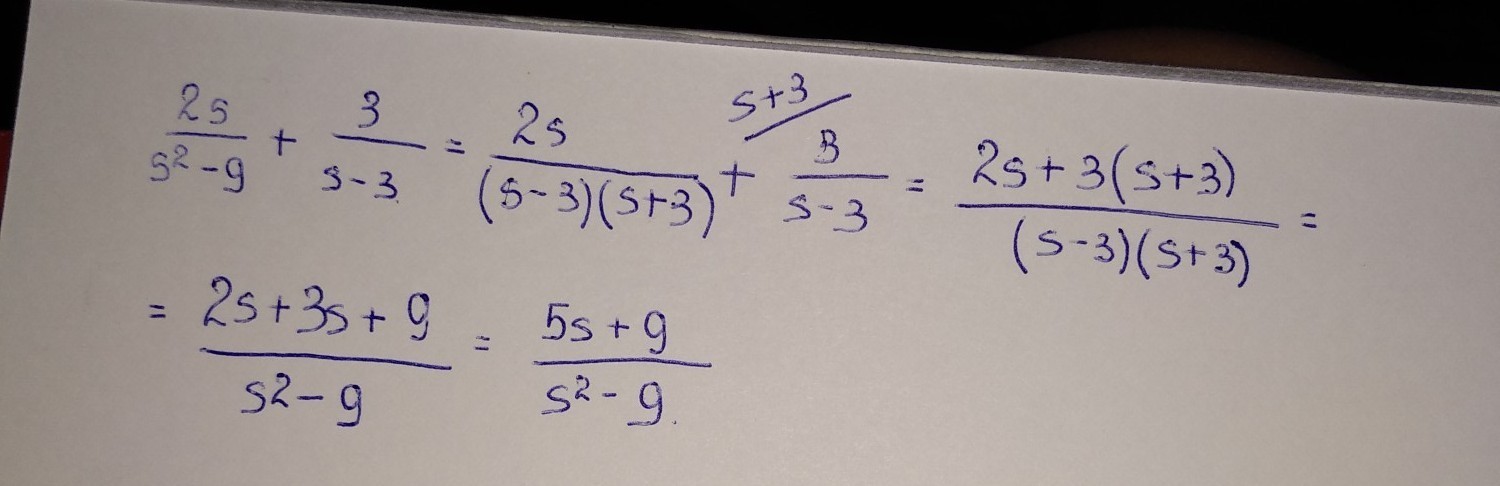 \frac{2s}{s^2-9} + \frac{3}{s-3} = \frac{2s}{(s-3)(s+3)} + \overset{s+3/}{\frac{3}{s-3}} = \frac{2s+3(s+3)}{(s-3)(s+3)} =
= \frac{2s+3s+9}{s^2-9} = \frac{5s+9}{s^2-9}.